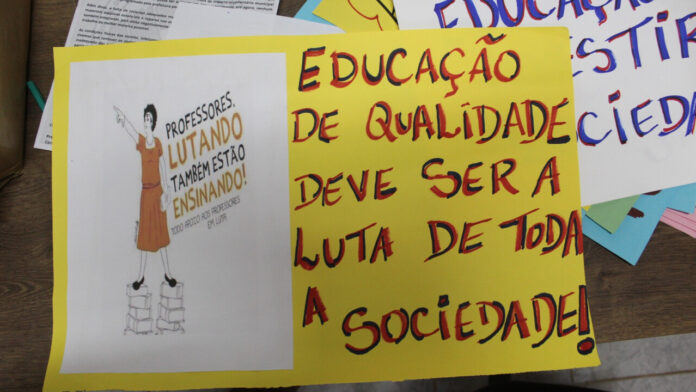 PROFESSORES,
LUTANDO
TAMBÉM ESTÃO
ENSINANDO!
TODO APOIO AOS PROFESSORES
EM LUTA
EDUCAÇÃO
DE QUALIDADE
DEVE SER A
LUTA DE TODA
A SOCIEDADE!
EDUCAÇÃ
ESTIR
CIEDA